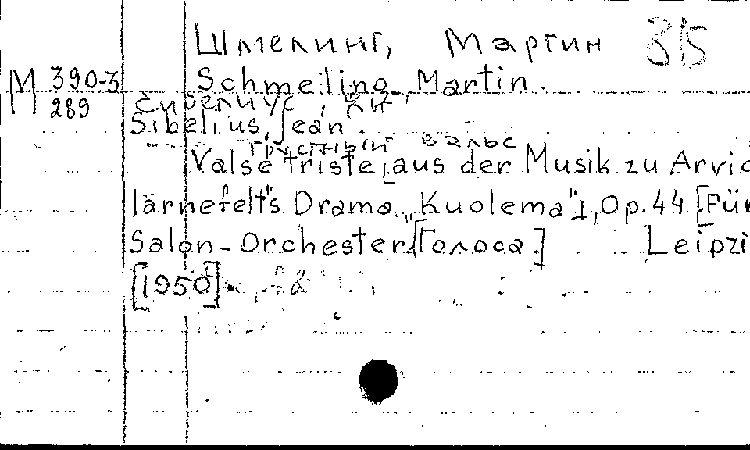 Шмелинг, Мартин 315
М 390-3 Schmeling, Martin.
289 Сибелиус, Ян.
Sibelius, Jean.
Грустный вальс
Valse triste [aus der Musik zu Arvid
Iärnefelt's Drama „Kuolema"], Op. 44 [Für
Salon-Orchester [Голоса.] Leipzi
[1950]